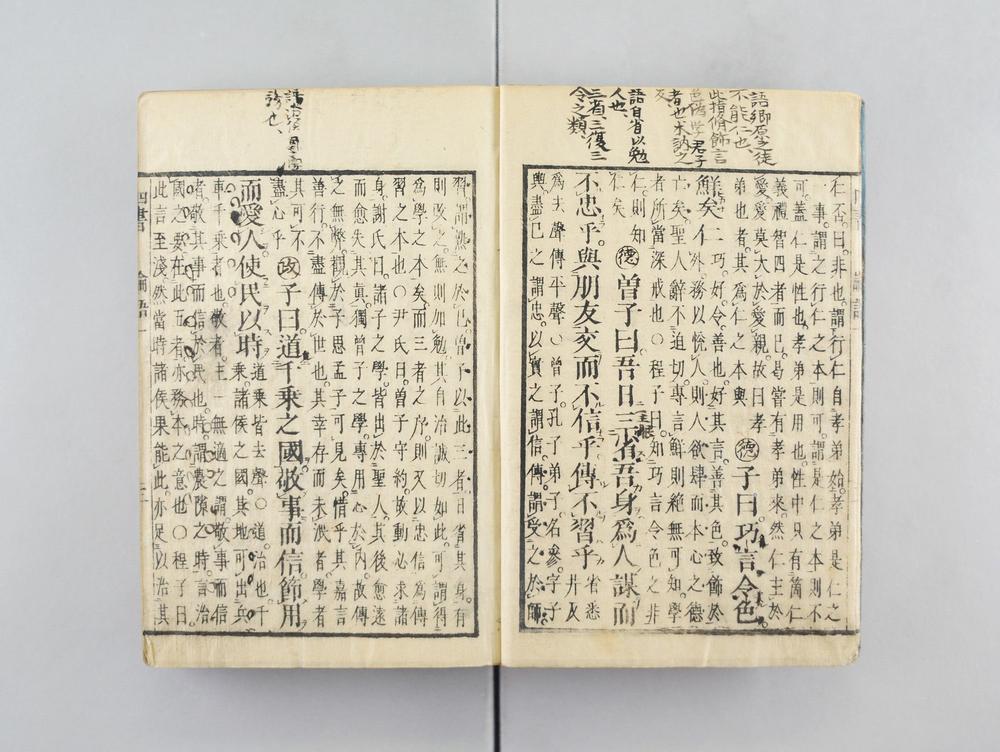 語鄉原之徒
不能仁也、
此指脩飾言
君子
者也木訥之
反
語自省以勉
人也、
三省、三復三
令之類、
仁否。曰。非也。謂行仁自孝弟始。孝弟是仁之
一事。謂之行仁之本則可。謂是仁之本則不
可。蓋仁是性也。孝弟是用也。性中只有箇仁
義禮智四者而已。曷嘗有孝弟來。然仁主於
愛。愛莫大於愛親。故曰孝
弟也者。其爲仁之本與
德子曰巧言令色
鮮矣仁
巧。好。令。善也。好其言。善其色。致飾於
外。務以悅人。則人欲肆而本心之德
亡矣。聖人辭不迫切。專言鮮則絶無可知。學
者所當深戒也○程子曰。知巧言令色之非
仁。則知
仁矣
德曾子曰吾日三省吾身爲人謀而
不忠乎與朋友交而不信乎傳不習乎
省悉
井反
爲去聲傳平聲○曾子。孔子弟子。名參。字子
輿。盡己之謂忠。以實之謂信。傳。謂受之於師。
習。謂熟之於己。曾子以此三者。日省其身。有
則改之。無則加勉。其自治誠切如此。可謂得
爲學之本矣。而三者之序。則又以忠信爲傳
習之本也○尹氏曰。曾子守約。故動必求諸
身。謝氏曰。諸子之學。皆出於聖人。其後愈遠
而愈失其眞。獨曾子之學。專用心於内。故傳
之無弊。觀於子思孟子可見矣。惜乎其嘉言
善行。不盡傳於世也。其幸存而未泯者。學者
其可不
盡心乎
政子曰道千乘之國敬事而信節用
而愛人使民以時
道乘皆去聲○道。治也。千
乘。諸侯之國。其地可出兵
車千乘者也。敬者。主一無適之謂。敬事而信
者。敬其事而信於民也。時。謂農隙之時。言治
國之要。在此五者。亦務本之意也○程子曰。
此言至淺。然當時諸侯果能此。亦足以治其
四書
論語一